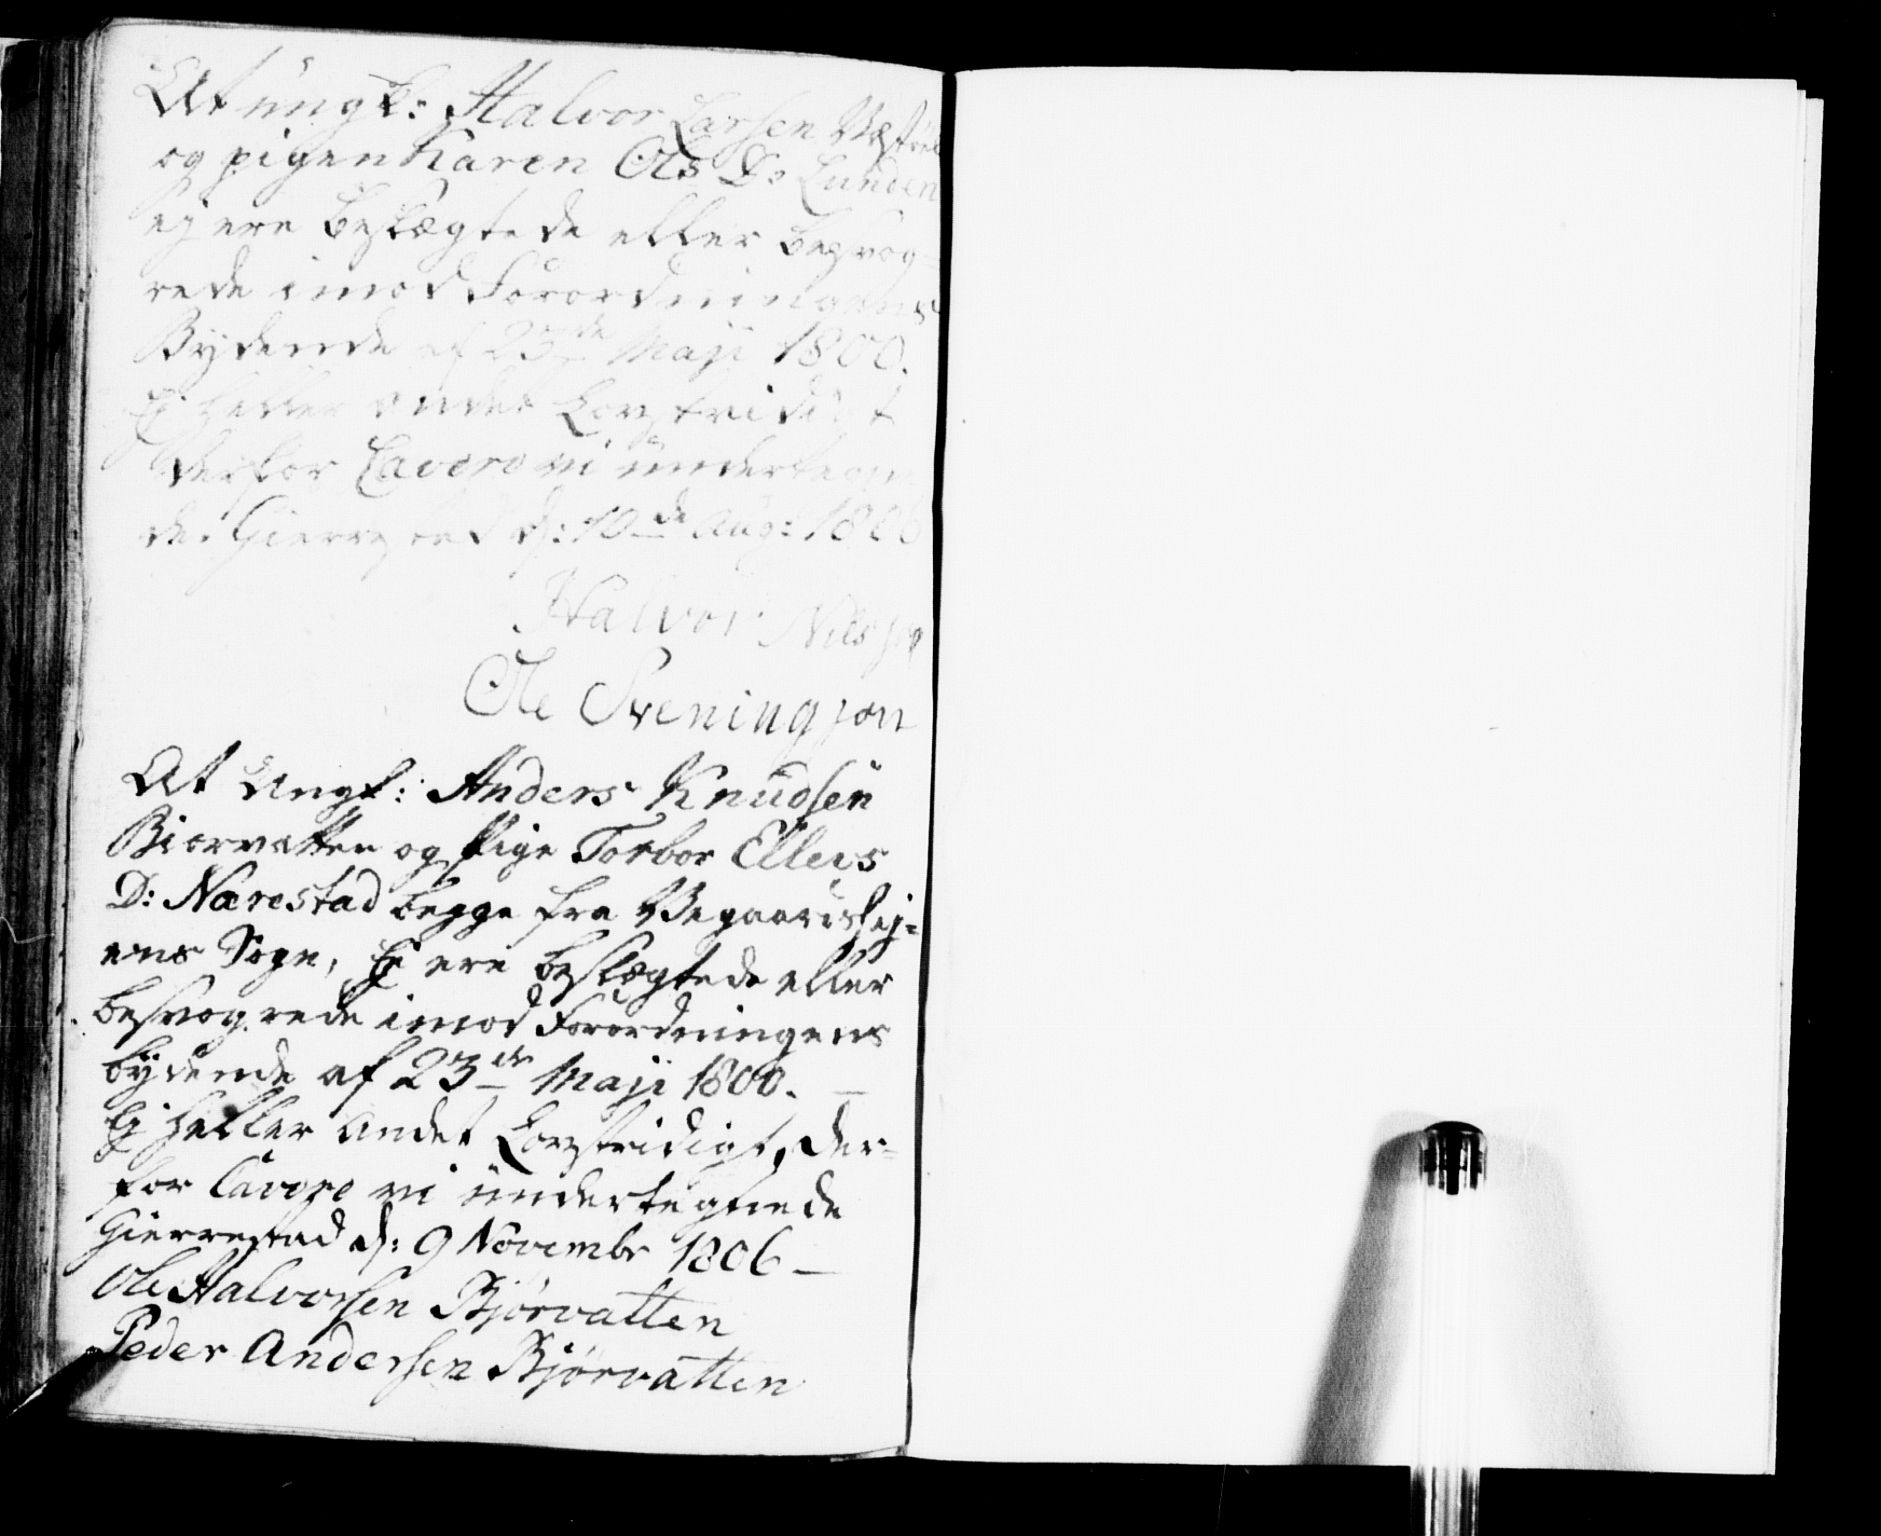 At ungk: Halvor Larsen
og pigen Karen Ols D: Lunden
ej ere beslægtede eller besvog-
rede imod Forordningens
Bydende af 23de Maji 1800.
Ej heller andet Lovstridigt
derfor Cavere vi undertegne
de. Gierrestad d: 10de Aug: 1806
Halvor Nilssen
Ole Sveningson
At Ungk: Anders Knudsen
Biorvatten og Pige Torbor Ellevs
D: Nærestad begge fra Wegaardshej-
ens Sogn, Ej ere beslægtede eller
besvogrede imod Forordningens
bydende af 23de Maji 1800. —
Ej heller andet Lovstridigt, der-
for Cavere vi undertegnede
Gierrestad d: 9 Novembr 1806 —
Ole Halvorsen Bjørvatten
Peder Andersen Bjørvatten